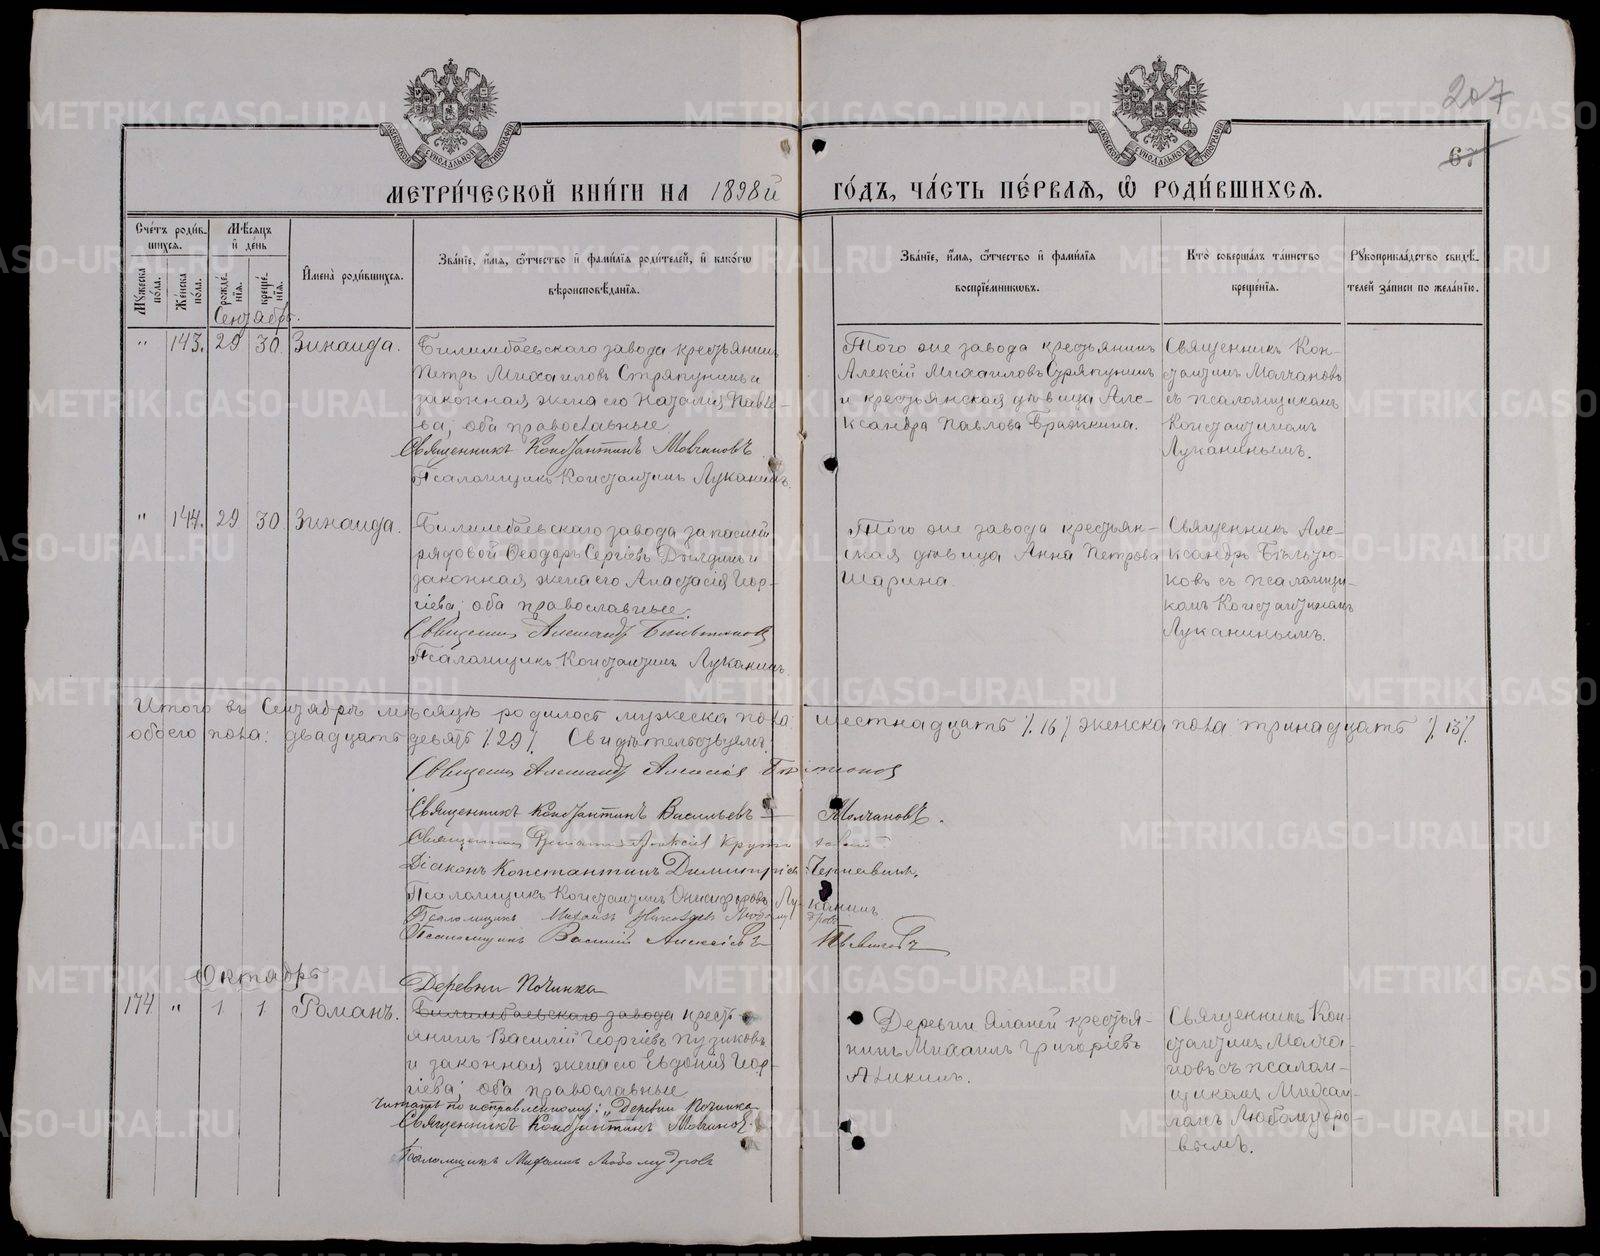 207
67
МЕТРИ́ЧЕСКОЙ КНИ́ГИ НА 1898й ГО́ДЪ, ЧА́СТЬ ПЕ́РВАЯ, Ѽ РОДИ́ВШИХСЯ.
Сче́тъ роди́в-
шихся.
Мѣ́сяцъ
и҆ де́нь
И҆мена̀ роди́вшихся.
Зва́нїе, и҆́мя, ѻ҆́тчество и҆ фами́лїя роди́телей, и҆ како́гѡ
вѣроисповѣ́данїя.
Зва́нїе, и҆́мя, ѻ҆́тчество и҆ фами́лїя
воспрїе́мникѡвъ.
Кто̀ соверша́лъ та́инство
креще́нїя.
Рꙋкоприкла́дство свидѣ́-
телей за́писи по жела́нїю.
Мꙋ́жеска
по́ла.
Же́нска
по́ла.
рожде́-
нїя.
креще́-
нїя.
Сентябрь.
" 143. 29 30 Зинаида.
Билимбаевскаго завода крестьянинъ
Петръ Михаиловъ Стряпунинъ и
законная жена его Наталия Павло-
ва; оба православные
Священникъ Константинъ Молчановъ
Псаломщикъ Константинъ Луканинъ.
Того же завода крестьянинъ
Алексій Михаиловъ Стряпунинъ
и крестьянская дѣвица Але-
ксандра Павлова Бражкина.
Священникъ Кон-
стантинъ Молчановъ
съ псаломщикомъ
Константиномъ
Луканинымъ.
" 144. 29 30 Зинаида.
Билимбаевскаго завода запасный
рядовой Ѳеодоръ Сергіевъ Дылдинъ и
законная жена его Анастасія Геор-
гіева; оба православные
Священникъ Александръ Бѣльтюковъ
Псаломщикъ Константинъ Луканинъ.
Того же завода крестьян-
ская дѣвица Анна Петрова
Шарина.
Священникъ Але-
ксандръ Бѣльтю-
ковъ съ псаломщи-
комъ Константиномъ
Луканинымъ.
Итого въ Сентябрѣ мѣсяцѣ родилось мужеска пола шестнадцать /16/ женска пола тринадцать /13/
обоего пола: двадцать девять /29/. Свидѣтельствуемъ.
Священникъ Александръ Алексіевъ Бѣльтюковъ
Священникъ Константинъ Васильевъ Молчановъ.
Священникъ Алексій
Діаконъ Константинъ Димитріевъ Черневинъ.
Псаломщикъ Константинъ Онисифоровъ Луканинъ
Псаломщикъ Михаилъ Любомудровъ
Псаломщикъ Василій Алексіевъ
Октябрь
174 " 1 1 Романъ.
Деревни Починка
Билимбаевскаго завода крест-
янинъ Василій Георгіевъ Пузиковъ
и законная жена его Евдокія Геор-
гіева; оба православные
Читать по исправленному: "Деревни Починка
Священникъ Константинъ Молчановъ.
Псаломщикъ Михаилъ Любомудровъ
Деревни крестья-
нинъ Михаилъ Григоріевъ
Аникинъ.
Священникъ Кон-
стантинъ Молча-
новъ съ псалом-
щикомъ Михаи-
ломъ Любомудро-
вымъ.